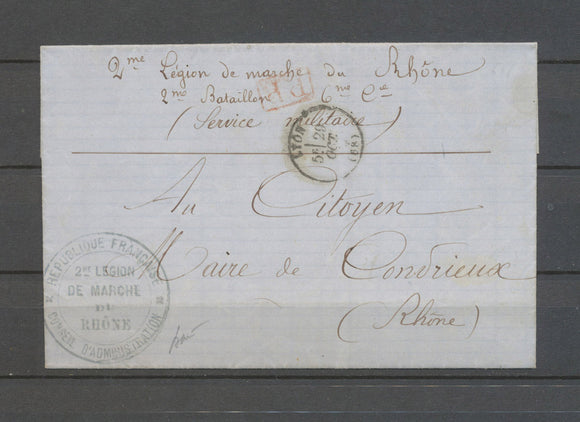 2me Légion de marche du Rhône
2me Bataillon 6me Cie
(Service militaire)
P.P.
LYON
5E
29
OCT.
(68)
Au Citoyen
Maire de Condrieux
(Rhône)
RÉPUBLIQUE FRANÇAISE
2me LÉGION
DE MARCHE
DU
RHÔNE
CONSEIL D'ADMINISTRATION